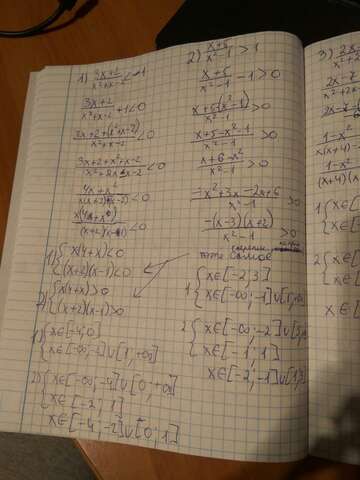 1) \frac{3x+2}{x^2+x-2} < -1
\frac{3x+2}{x^2+x-2} + 1 < 0
\frac{3x+2+(x^2+x-2)}{x^2+x-2} < 0
\frac{3x+2+x^2+x-2}{x^2+x-2} < 0
\frac{4x+x^2}{(x+2)(x-1)} < 0
\frac{x(4+x)}{(x+2)(x-1)} < 0
1) { x(4+x)<0
(x+2)(x-1)<0
2) { x(4+x)>0
(x+2)(x-1)>0
1) { x∈[-4;0]
x∈[-∞;-2]∪[1;+∞]
2) { x∈[-∞;-4]∪[0;+∞]
x∈[-2;1]
x∈[-4;-2]∪[0;1]
2) \frac{x+5}{x^2-1} > 1
\frac{x+5}{x^2-1} - 1 > 0
\frac{x+5(x^2-1)}{x^2-1} > 0
\frac{x+5-x^2-1}{x^2-1} > 0
\frac{x+6-x^2}{x^2-1} > 0
\frac{-x^2+3x-2x+6}{x^2-1} > 0
\frac{-(x-3)(x+2)}{x^2-1} > 0
самое
1 { x∈[-2;3]
x∈[-∞;-1]∪[1;+∞
2 { x∈[-∞;-2]∪[3;
x∈[-1;1]
x∈[-2;-1]∪[1;
3) \frac{2x-
x^2+2
2x-7
x^2+2x-
1-x^2
x(x+4)-
1-x^2
(x+4)(x
1 { x
x
2 { x
x
x∈